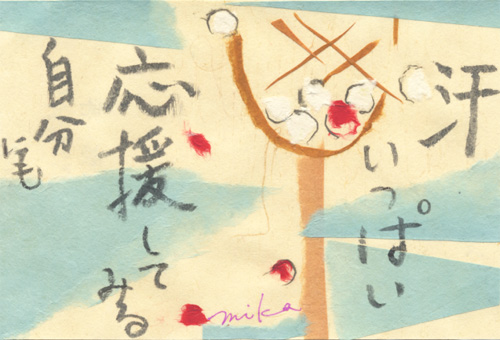 汗
いっぱい
応援
してみる
自分
にも
mika